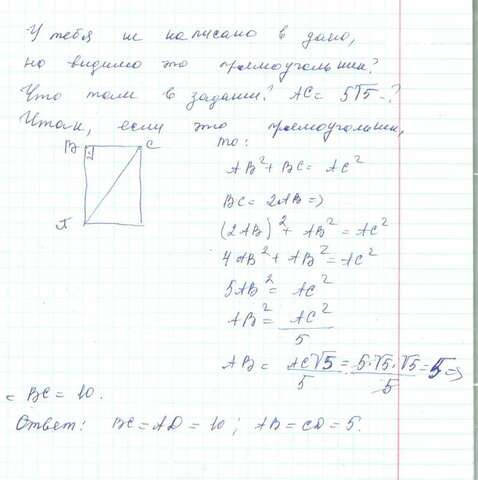 У тебя не написано в дано,
но видимо это прямоугольник?
Что там в задании? AC = 5√5 -?
Итак, если это прямоугольник,
то:
B C
A
AB² + BC = AC²
BC = 2AB =>
(2AB)² + AB² = AC²
4AB² + AB² = AC²
5AB² = AC²
AB² = AC²/5
AB = AC√5/5 = 5·√5·√5/5 = 5 =>
< BC = 10.
Ответ: BC = AD = 10; AB = CD = 5.